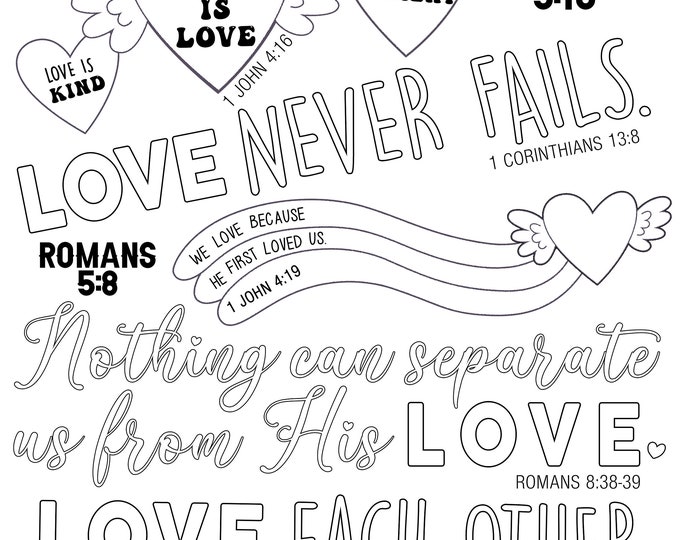 IS
LOVE
1 JOHN 4:16
LOVE IS
KIND
LOVE NEVER FAILS.
1 CORINTHIANS 13:8
WE LOVE BECAUSE
HE FIRST LOVED US.
1 JOHN 4:19
ROMANS
5:8
Nothing can separate
us from His LOVE.
ROMANS 8:38-39
LOVE EACH OTHER